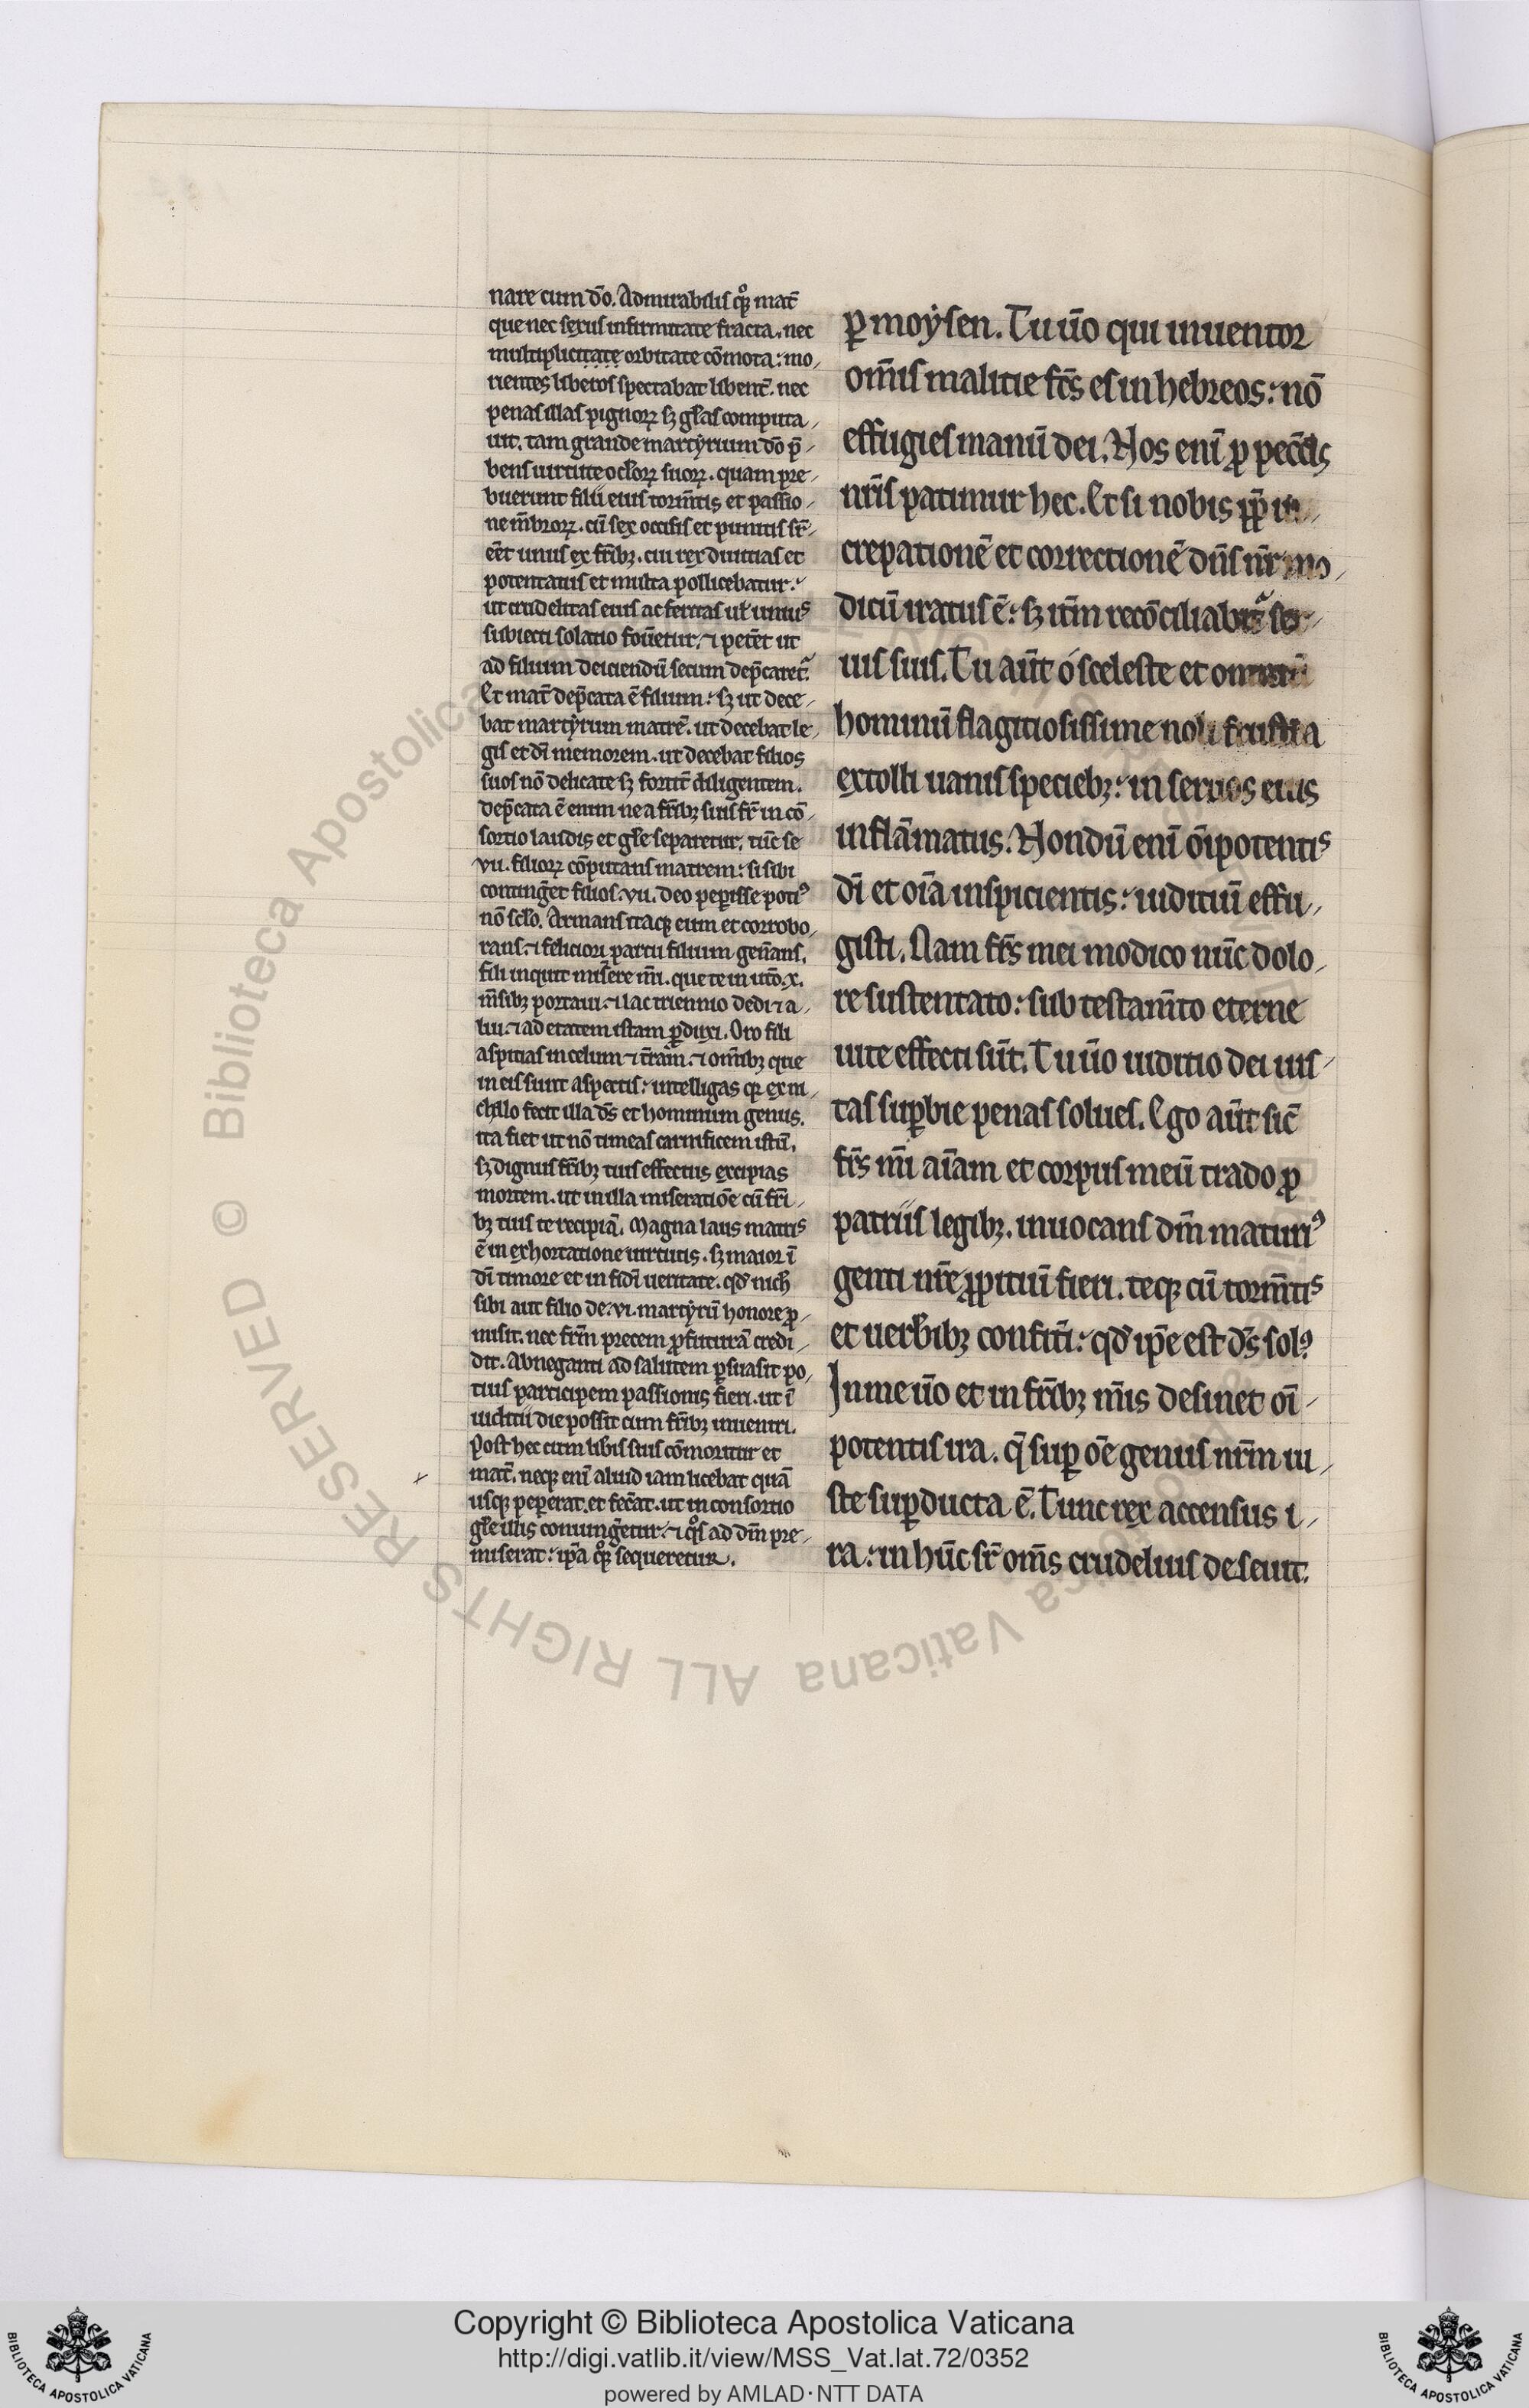 nare cum dō. Admirabilis q̊ꝫ mat̄
que nec sexus infirmitate fracta. nec
multiplicitate orbitate cōmota: mo-
rientes liberos spectabat libent̄. nec
penas illas pignorꝝ sꝫ gl̄as computa-
uit. tam grande martyrium dō p̄-
bens uirtute ocl̄orꝝ suorꝝ. quam pre-
buerunt filii eius torm̄tis et passio-
ne m̄brorꝝ. cū sex occisis et punitis sr̄-
eēt unus ex fr̄ibꝫ. cui rex diuitias et
potentatus et multa pollicebatur:
ut crudelitas eius ac feritas ul̓ unius
subiecti solatio fou̅etur. ⁊ peteēt ut
ad filium deiciendū secum dep̄caret᷑.
Et mat̄ dep̄cata ē filium: sꝫ ut dece-
bat martyrum matrē. ut decebat le-
gis et dī memorem. ut decebat filios
suos nō delicate sꝫ fortit̄ diligentem.
dep̄cata ē enim ne a fr̄ibꝫ suis fr̄ in cō-
sortio laudis et gl̄e separetur. tūc se
vii. filiorꝝ cōputans matrem: si sibi
conting̅et filios .vii. deo peꝑisse poti⁹
nō sc̄lo. Armans itaqꝫ eum et corrobo-
rans. ⁊ feliciori partu filium gen̄ans.
fili inquit mis̄ere m̄i. que te in ut̄o .x.
m̄sibꝫ portaui. ⁊ lac triennio dedi ⁊ a-
lui. ⁊ ad etatem istam ꝑduxi. Oro fili
aspicias in celum ⁊ t̄ram. ⁊ om̄ibꝫ que
in eis sunt aspectis: intelligas qꝛ ex ni-
chilo fecit illa d̄s et hominum genus.
ita fiet ut nō timeas carnificem istū.
sꝫ dignus fr̄ibꝫ tuis effectus excipias
mortem. ut in illa miseratiōe cū fr̄i-
bꝫ tuis te recipiā. Magna laus matris
ē in exhortatione uirtutis. sꝫ maior ī
dī timore et in fidī ueritate. qd̄ nich̄
sibi aut filio de .vi. martyrū honore ꝓ-
misit. nec fr̄m precem ꝓfuturā credi-
dit. Abneganti ad salutem ꝑsuasit po-
tius participem passionis fieri. ut ī
iuditii die possit cum fr̄ibꝫ inueniri.
Post hec cum libis suis cōmoritur et
mat̄. neqꝫ enī aliud iam licebat quā
usqꝫ peꝑerat. et fec̄at. ut in consortio
gl̄e illis coniung̅etur. ⁊ q̊s ad dm̄ pre-
miserat: ip̄a q̊ꝫ sequeretur.
ꝑ moysen. Tu ūo qui inuentor
om̄is malitie fc̄s es in hebreos: nō
effugies manū dei. Nos enī ꝓ pecc̄is
nr̄is patimur hec. Et si nobis ꝓp̄ in-
crepationē et correctionē dn̄s nr̄ mo-
dicū iratus ē: sꝫ itm̄ recōciliabit᷑ ser-
uis suis. Tu aūt o sceleste et omniū
hominū flagitiosissime noli frustra
extolli uanis speciebꝫ: in seruos eius
inflāmatus. Nondū enī ōipotentis
dī et oīa inspicientis: iuditiū effu-
gisti. Nam fr̄s mei modico nūc dolo-
re sustentato: sub testam̄to eterne
uite effecti sūt. Tu ūo iuditio dei ius-
tas suꝑbie penas solues. Ego aūt sic̄
fr̄s m̄i aīam et corpus meū trado ꝓ
patriis legibꝫ. inuocans dm̄ maturi⁹
genti nr̄e ꝓpitiū fieri. teqꝫ cū torm̄tis
et uerbibꝫ confit̄i: qd̄ ip̄e est d̄s sol⁹.
In me ūo et in fr̄ibꝫ m̄is desinet oī-
potentis ira. q̄ suꝑ oē genus nr̄m iu-
ste suꝑducta ē. Tunc rex accensus i-
ra: in hūc sr̄ om̄s crudelius deseuit.
Copyright © Biblioteca Apostolica Vaticana
http://digi.vatlib.it/view/MSS_Vat.lat.72/0352
powered by AMLAD·NTT DATA
BIBLIOTECA APOSTOLICA VATICANA
BIBLIOTECA APOSTOLICA VATICANA